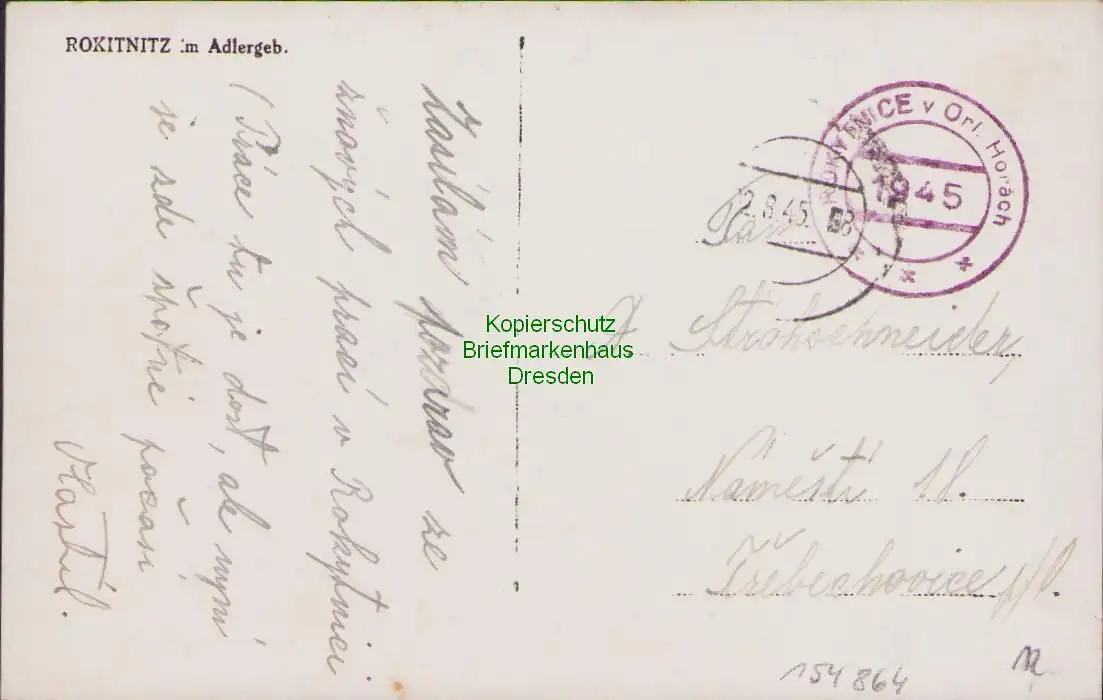 ROKITNITZ im Adlergeb.
Zasílám pozdrav ze
žňových prací v Rokytnici
(Práce tu je dost, ale nyní
je zde špatné počasí
Vlastíl.
ROKYTNICE v Orl. Horách
1945
2.8.45
Pan
A Strohschneider,
Náměstí 18.
Třebechovice p/O.
Kopierschutz
Briefmarkenhaus
Dresden
154864